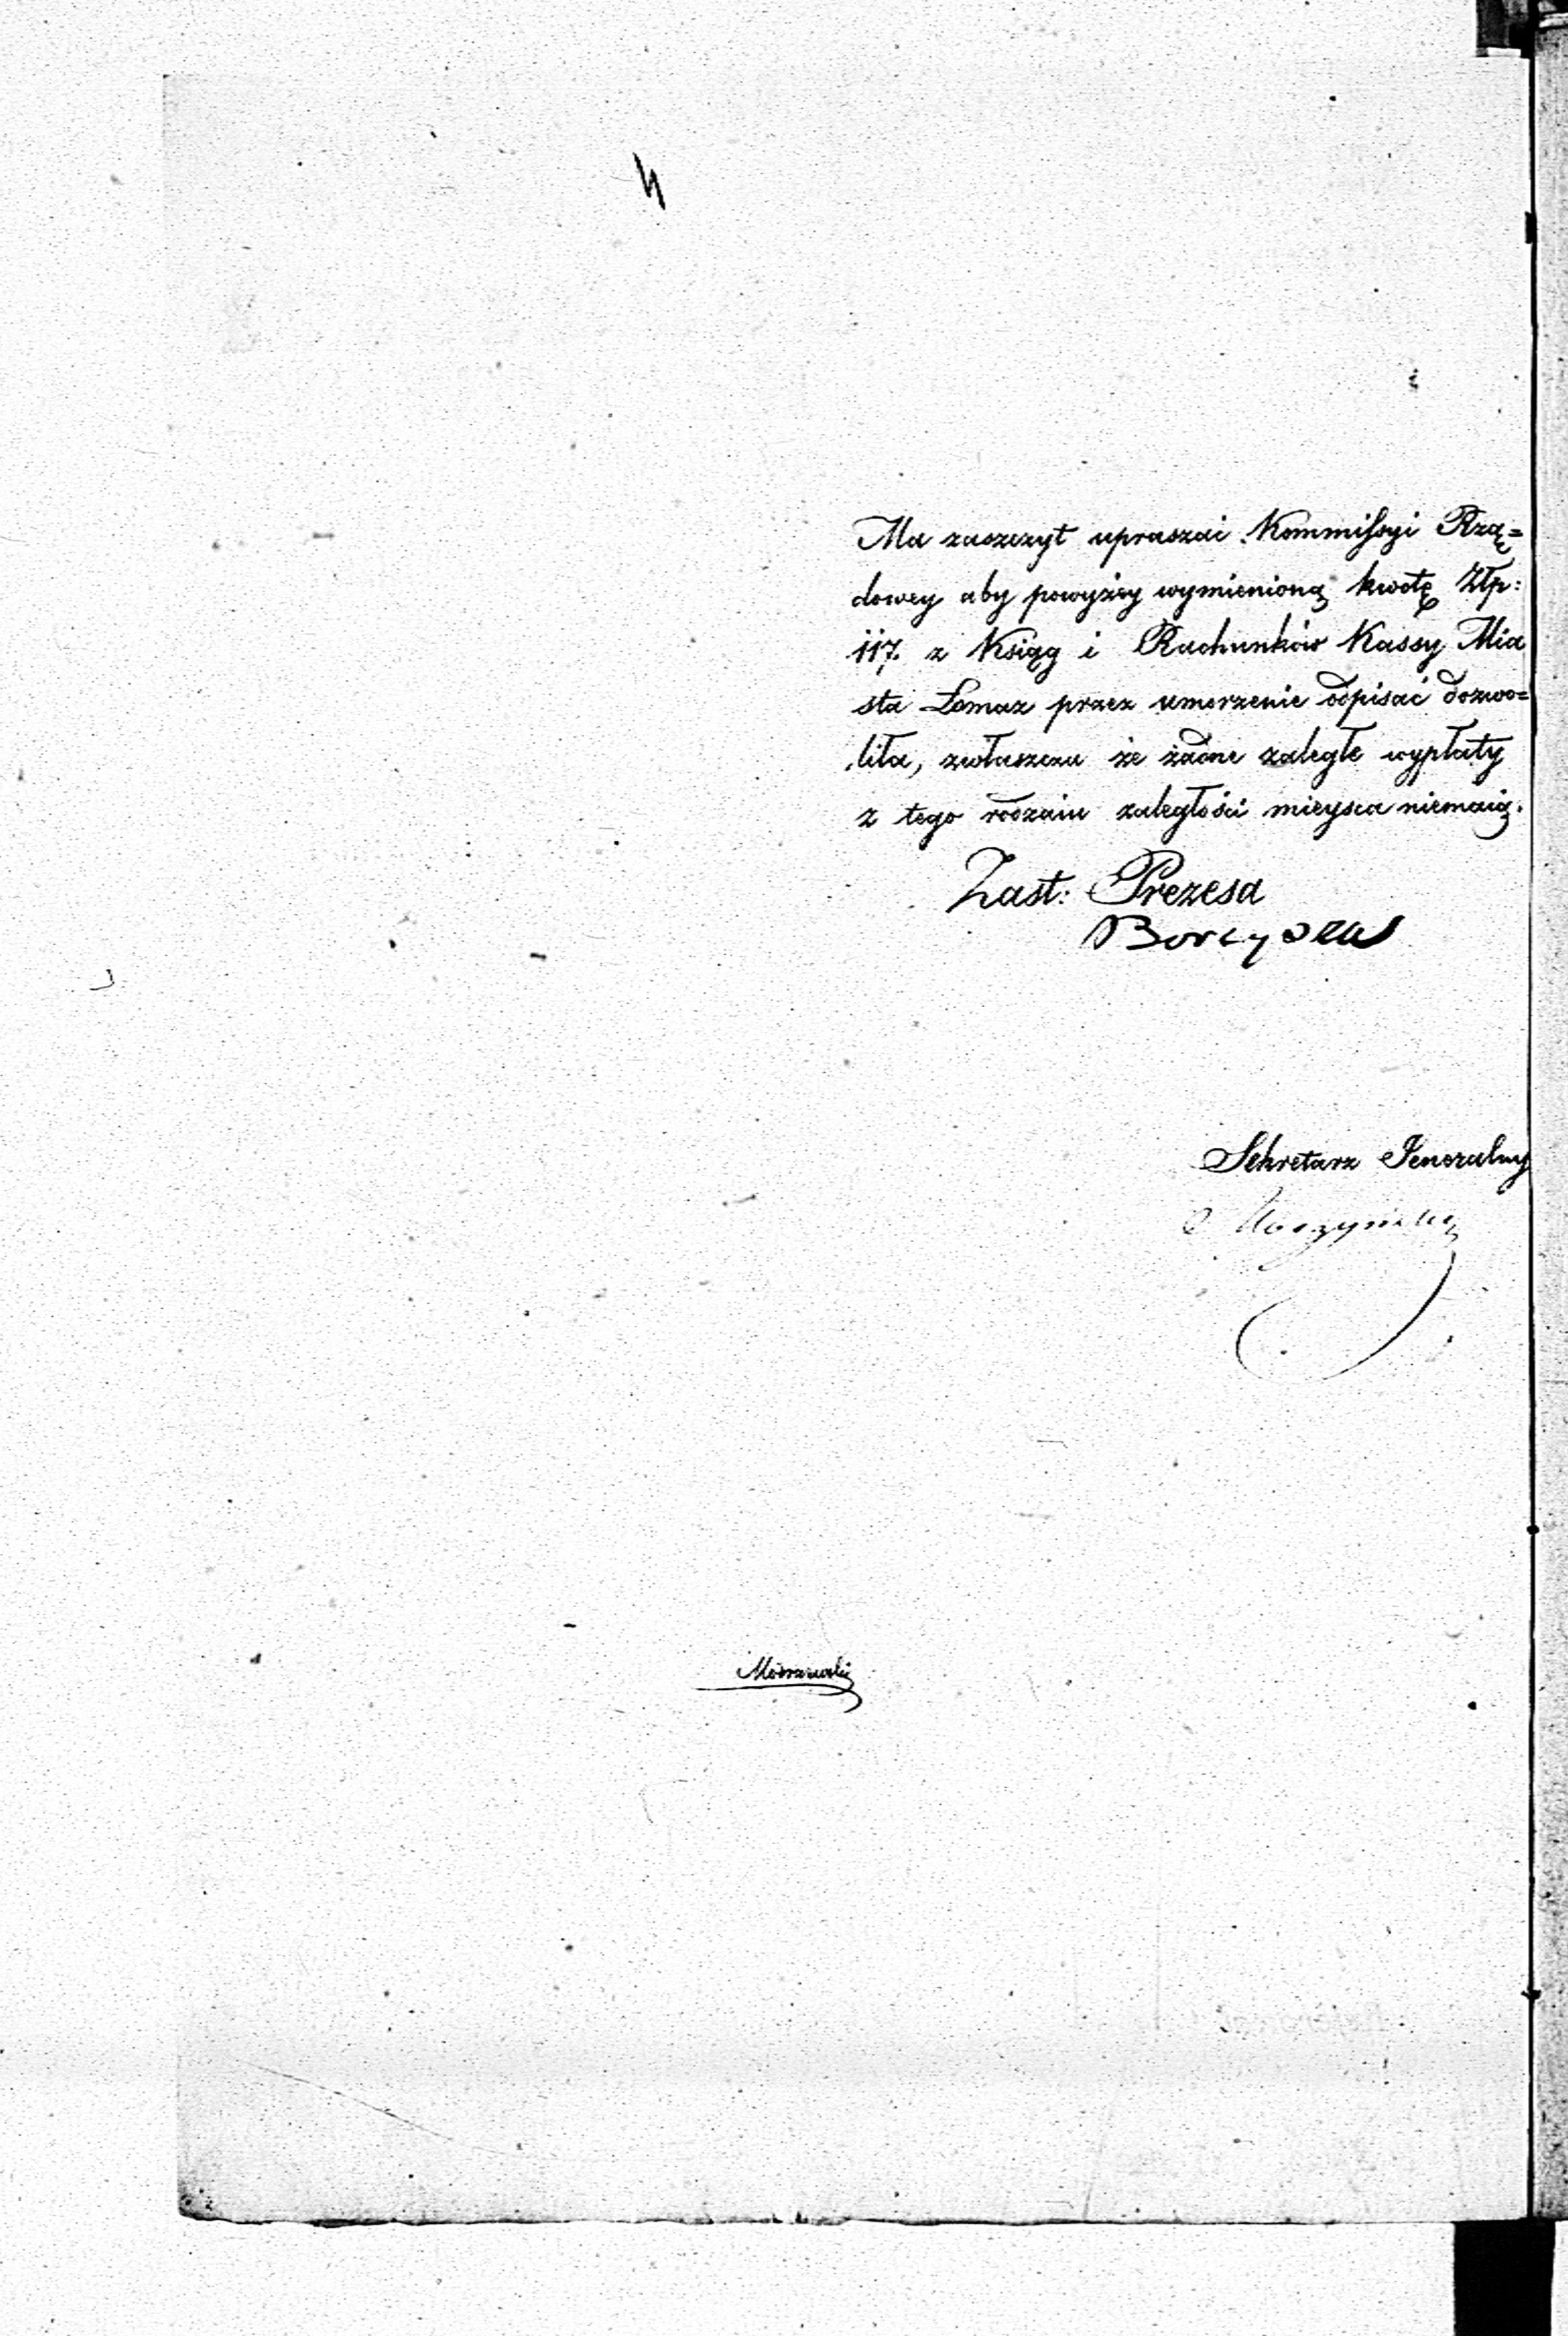 Ma zaszczyt upraszać Kommissyi Rzą=
dowey aby powyżey wymienioną kwotę Złp:
117. z Ksiąg i Rachunków Kassy Mia
sta Łomaz przez umorzenie odpisać dozwo=
liła, zwłaszcza że żadne zaległe wypłaty
z tego rodzaiu zaległości mieysca niemaią.
Zast: Prezesa
Sekretarz Jeneralny